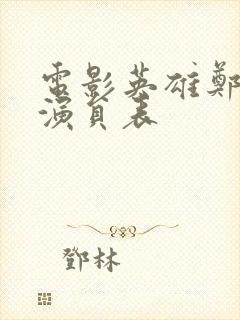 電影英雄鄭
演員表
鄧林